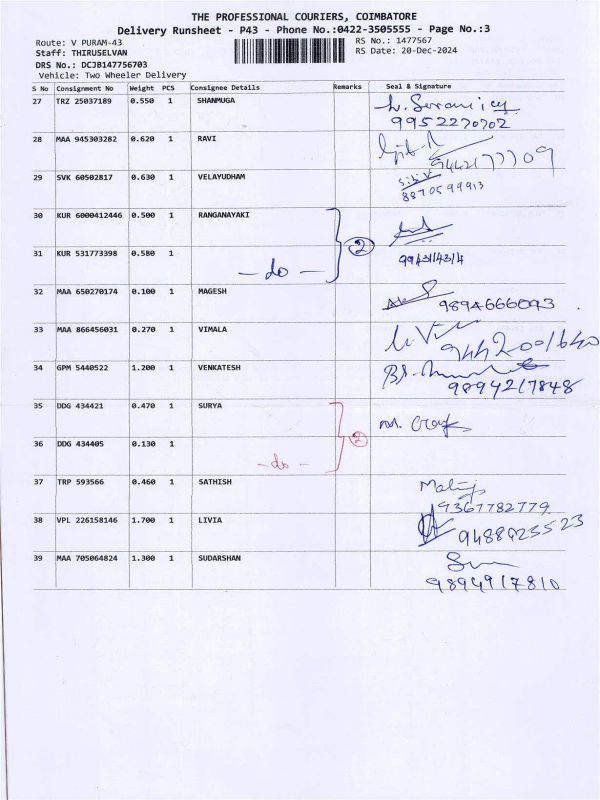 THE PROFESSIONAL COURIERS, COIMBATORE
Delivery Runsheet - P43 - Phone No.:0422-3505555 - Page No.:3
Route: V PURAM-43
RS No.: 1477567
Staff: THIRUSELVAN
RS Date: 20-Dec-2024
DRS No.: DCJB147756703
Vehicle: Two Wheeler Delivery
S No Consignment No Weight PCS Consignee Details Remarks Seal & Signature
27 TRZ 25037189 0.550 1 SHANMUGA
9952270702
28 MAA 945303282 0.620 1 RAVI
9442177709
29 SVK 60502817 0.630 1 VELAYUDHAM
8870599913
30 KUR 6000412446 0.500 1 RANGANAYAKI
2
31 KUR 531773398 0.580 1
- do -
32 MAA 650270174 0.100 1 MAGESH
9894666093
33 MAA 866456031 0.270 1 VIMALA
34 GPM 5440522 1.200 1 VENKATESH
9894217848
35 DDG 434421 0.470 1 SURYA
2
36 DDG 434405 0.130 1
- do -
37 TRP 593566 0.460 1 SATHISH
9367782779
38 VPL 226158146 1.700 1 LIVIA
9488923523
39 MAA 705064824 1.300 1 SUDARSHAN
9894917810